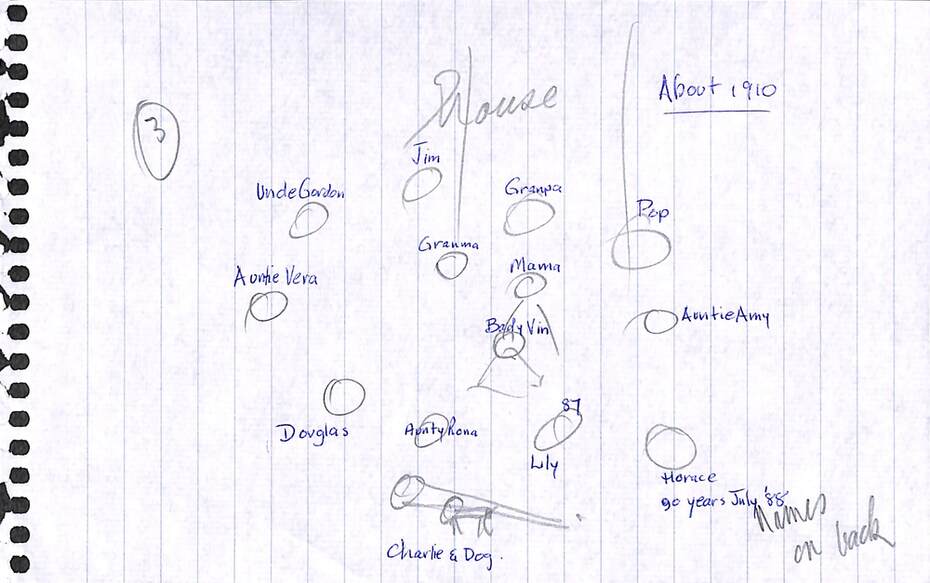 3
House
About 1910
Jim
Uncle Gordon
Granpa
Pop
Granma
Mama
Auntie Vera
Auntie Amy
Baby Vin
87
Douglas
Aunty Rona
Lily
Horace
90 years July '88
Names
on back
Charlie & Dog.